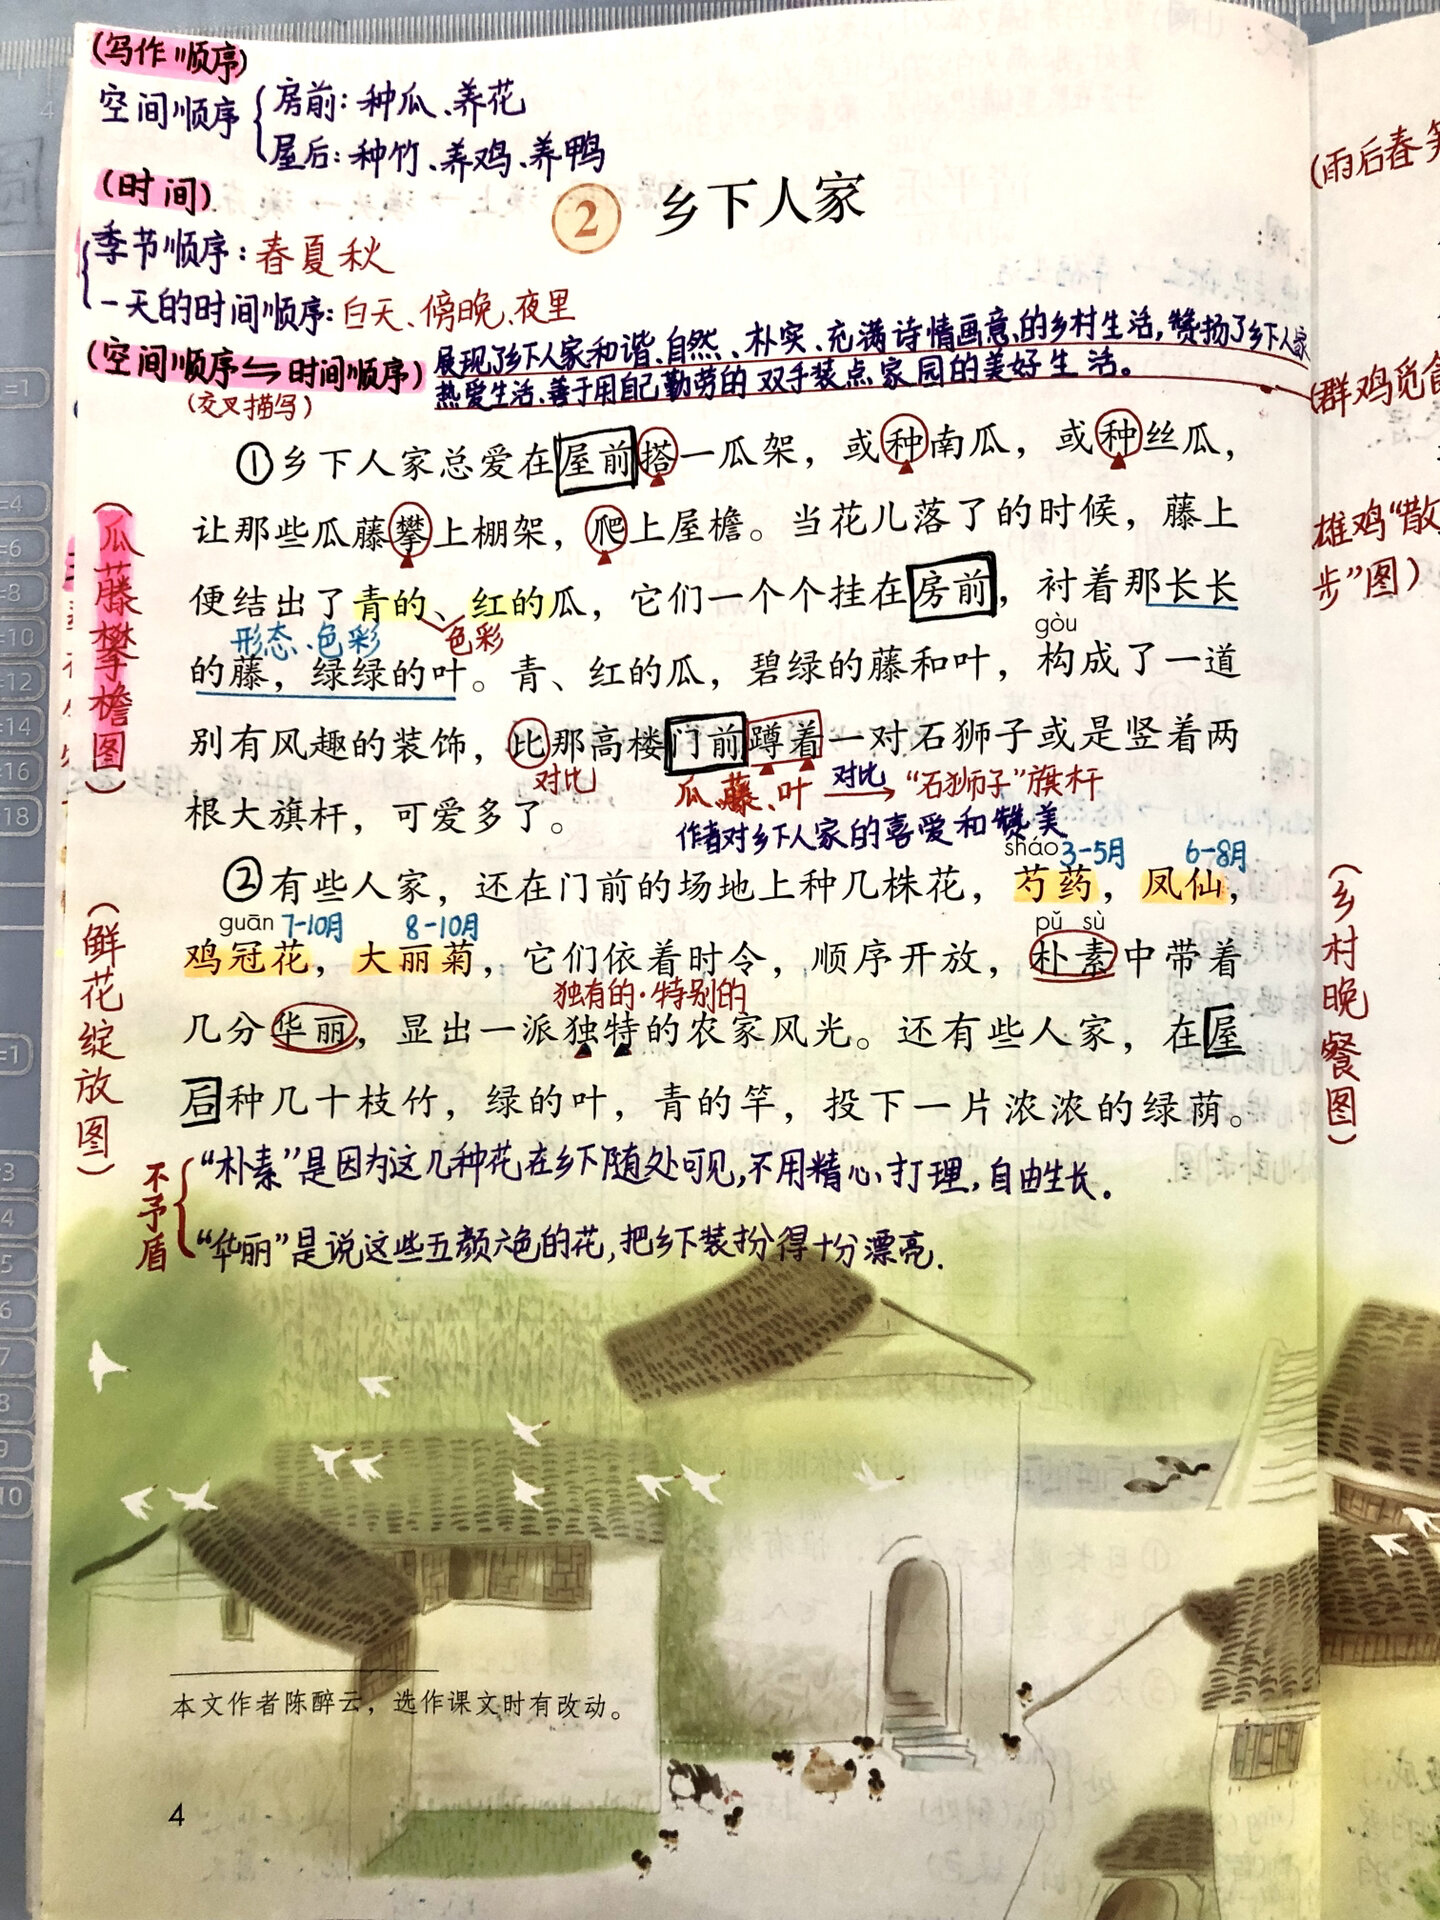 (写作顺序)
空间顺序 { 房前：种瓜、养花
屋后：种竹、养鸡、养鸭
(时间)
季节顺序：春夏秋
一天的时间顺序：白天、傍晚、夜里
(空间顺序⇋时间顺序)
(交叉描写)
展现了乡下人家和谐、自然、朴实、充满诗情画意的乡村生活，赞扬了乡下人家
热爱生活、善于用自己勤劳的双手装点家园的美好生活。
2 乡下人家
①乡下人家总爱在屋前搭一瓜架，或种南瓜，或种丝瓜，
让那些瓜藤攀上棚架，爬上屋檐。当花儿落了的时候，藤上
便结出了青的、红的瓜，它们一个个挂在房前，衬着那长长
形态、色彩 色彩
gòu
的藤，绿绿的叶。青、红的瓜，碧绿的藤和叶，构成了一道
别有风趣的装饰，比那高楼门前蹲着一对石狮子或是竖着两
对比
瓜、藤、叶 对比→ “石狮子”旗杆
根大旗杆，可爱多了。
作者对乡下人家的喜爱和赞美
sháo 3-5月 6-8月
②有些人家，还在门前的场地上种几株花，芍药，凤仙，
guān 7-10月 8-10月 pǔ sù
鸡冠花，大丽菊，它们依着时令，顺序开放，朴素中带着
独有的·特别的
几分华丽，显出一派独特的农家风光。还有些人家，在屋
后种几十枝竹，绿的叶，青的竿，投下一片浓浓的绿荫。
不矛盾
“朴素”是因为这几种花在乡下随处可见，不用精心打理，自由生长。
“华丽”是说这些五颜六色的花，把乡下装扮得十分漂亮.
(瓜藤攀檐图)
(鲜花绽放图)
本文作者陈醉云，选作课文时有改动。
4
(雨后春笋
(群鸡觅食
雄鸡“散
步”图)
(乡村晚餐图)